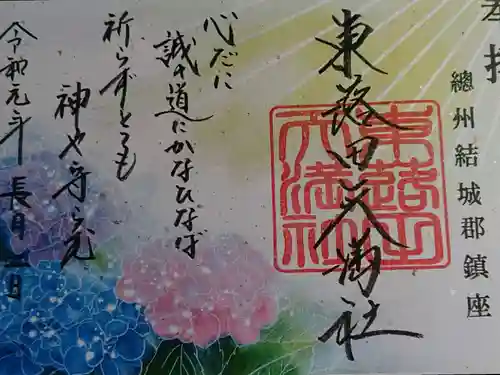 奉拝
總州結城郡鎮座
東蕗田天満社
東蕗田
天満社
心だに
誠の道にかなひなば
祈らずとても
神や守らむ
令和元年 長月一日